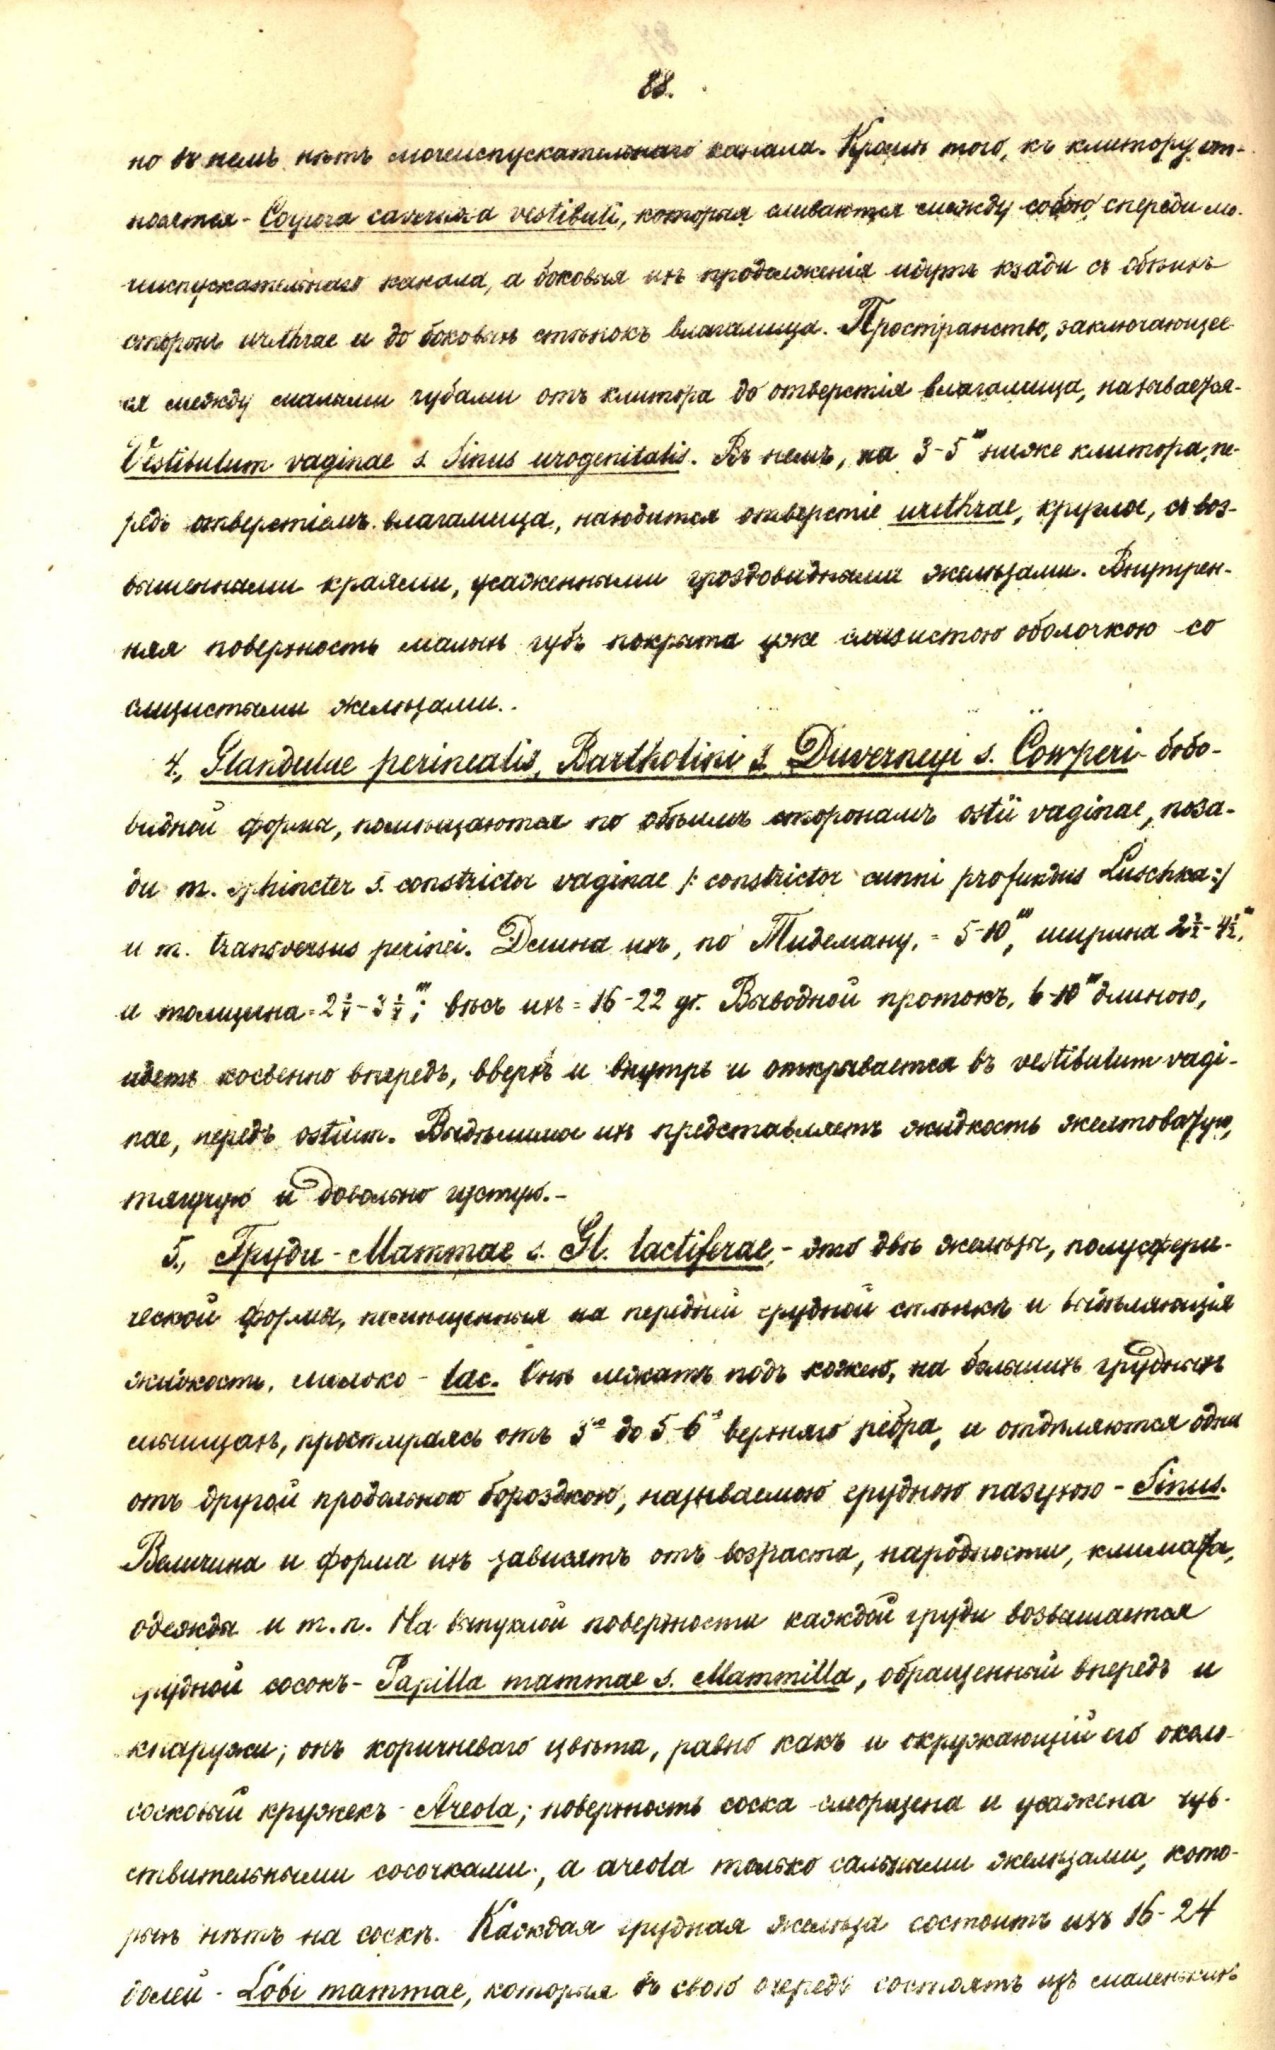 88.
но въ немъ нѣтъ мочеиспускательнаго канала. Кромѣ того, къ клитору от-
носятся - Corpora cavernosa vestibuli, которыя сливаются между собою спереди мо-
чеиспускательнаго канала, а боковыя ихъ продолженія идутъ кзади съ обѣихъ
сторонъ urethrae и до боковыхъ стѣнокъ влагалища. Пространство, заключающее-
ся между малыми губами отъ клитора до отверстія влагалища, называется -
Vestibulum vaginae s. Sinus urogenitalis. Въ немъ, на 3-5‴ ниже клитора, пе-
редъ отверстіемъ влагалища, находится отверстіе urethrae, круглое, съ воз-
вышенными краями, усаженными гроздовидными железами. Внутрен-
няя поверхность малыхъ губъ покрыта уже слизистою оболочкою со
слизистыми железами.
4., Glandulae perinealis, Bartholini s. Duverneyi s. Cowperi - бобо-
видной формы, помѣщаются по обѣимъ сторонамъ ostii vaginae, поза-
ди m. sphincter s. constrictor vaginae /: constrictor cunni profundus Luschka :/
и m. transversus perinei. Длина ихъ, по Тидеману, = 5-10‴, ширина 2½-4½‴,
и толщина = 2¼-3¼‴; вѣсъ ихъ = 16-22 gr. Выводной протокъ, 6-10‴ длиною,
идетъ косвенно впередъ, вверхъ и внутрь и открывается въ vestibulum vagi-
nae, передъ ostium. Выдѣлимое ихъ представляетъ жидкость желтоватую,
тягучую и довольно густую. -
5., Груди - Mammae s. Gl. lactiferae, - это двѣ железы, полусфери-
ческой формы, помѣщенныя на передней грудной стѣнкѣ и выдѣляющія
жидкость, молоко - lac. Онѣ лежатъ подъ кожею, на большихъ грудныхъ
мышцахъ, простираясь отъ 3го до 5-6го верхняго ребра, и отдѣляются одна
отъ другой продольною бороздкою, называемою грудною пазухою - Sinus.
Величина и форма ихъ зависятъ отъ возраста, народности, климата,
одежды и т. п. На выпуклой поверхности каждой груди возвышается
грудной сосокъ - Papilla mammae s. Mammilla, обращенный впередъ и
кнаружи; онъ коричневаго цвѣта, равно какъ и окружающій его около-
сосковый кружекъ - Areola; поверхность соска сморщена и усажена чув-
ствительными сосочками, а areola только сальными железами, кото-
рыхъ нѣтъ на соскѣ. Каждая грудная железа состоитъ изъ 16-24
долей - Lobi mammae, которыя въ свою очередь состоятъ изъ маленькихъ